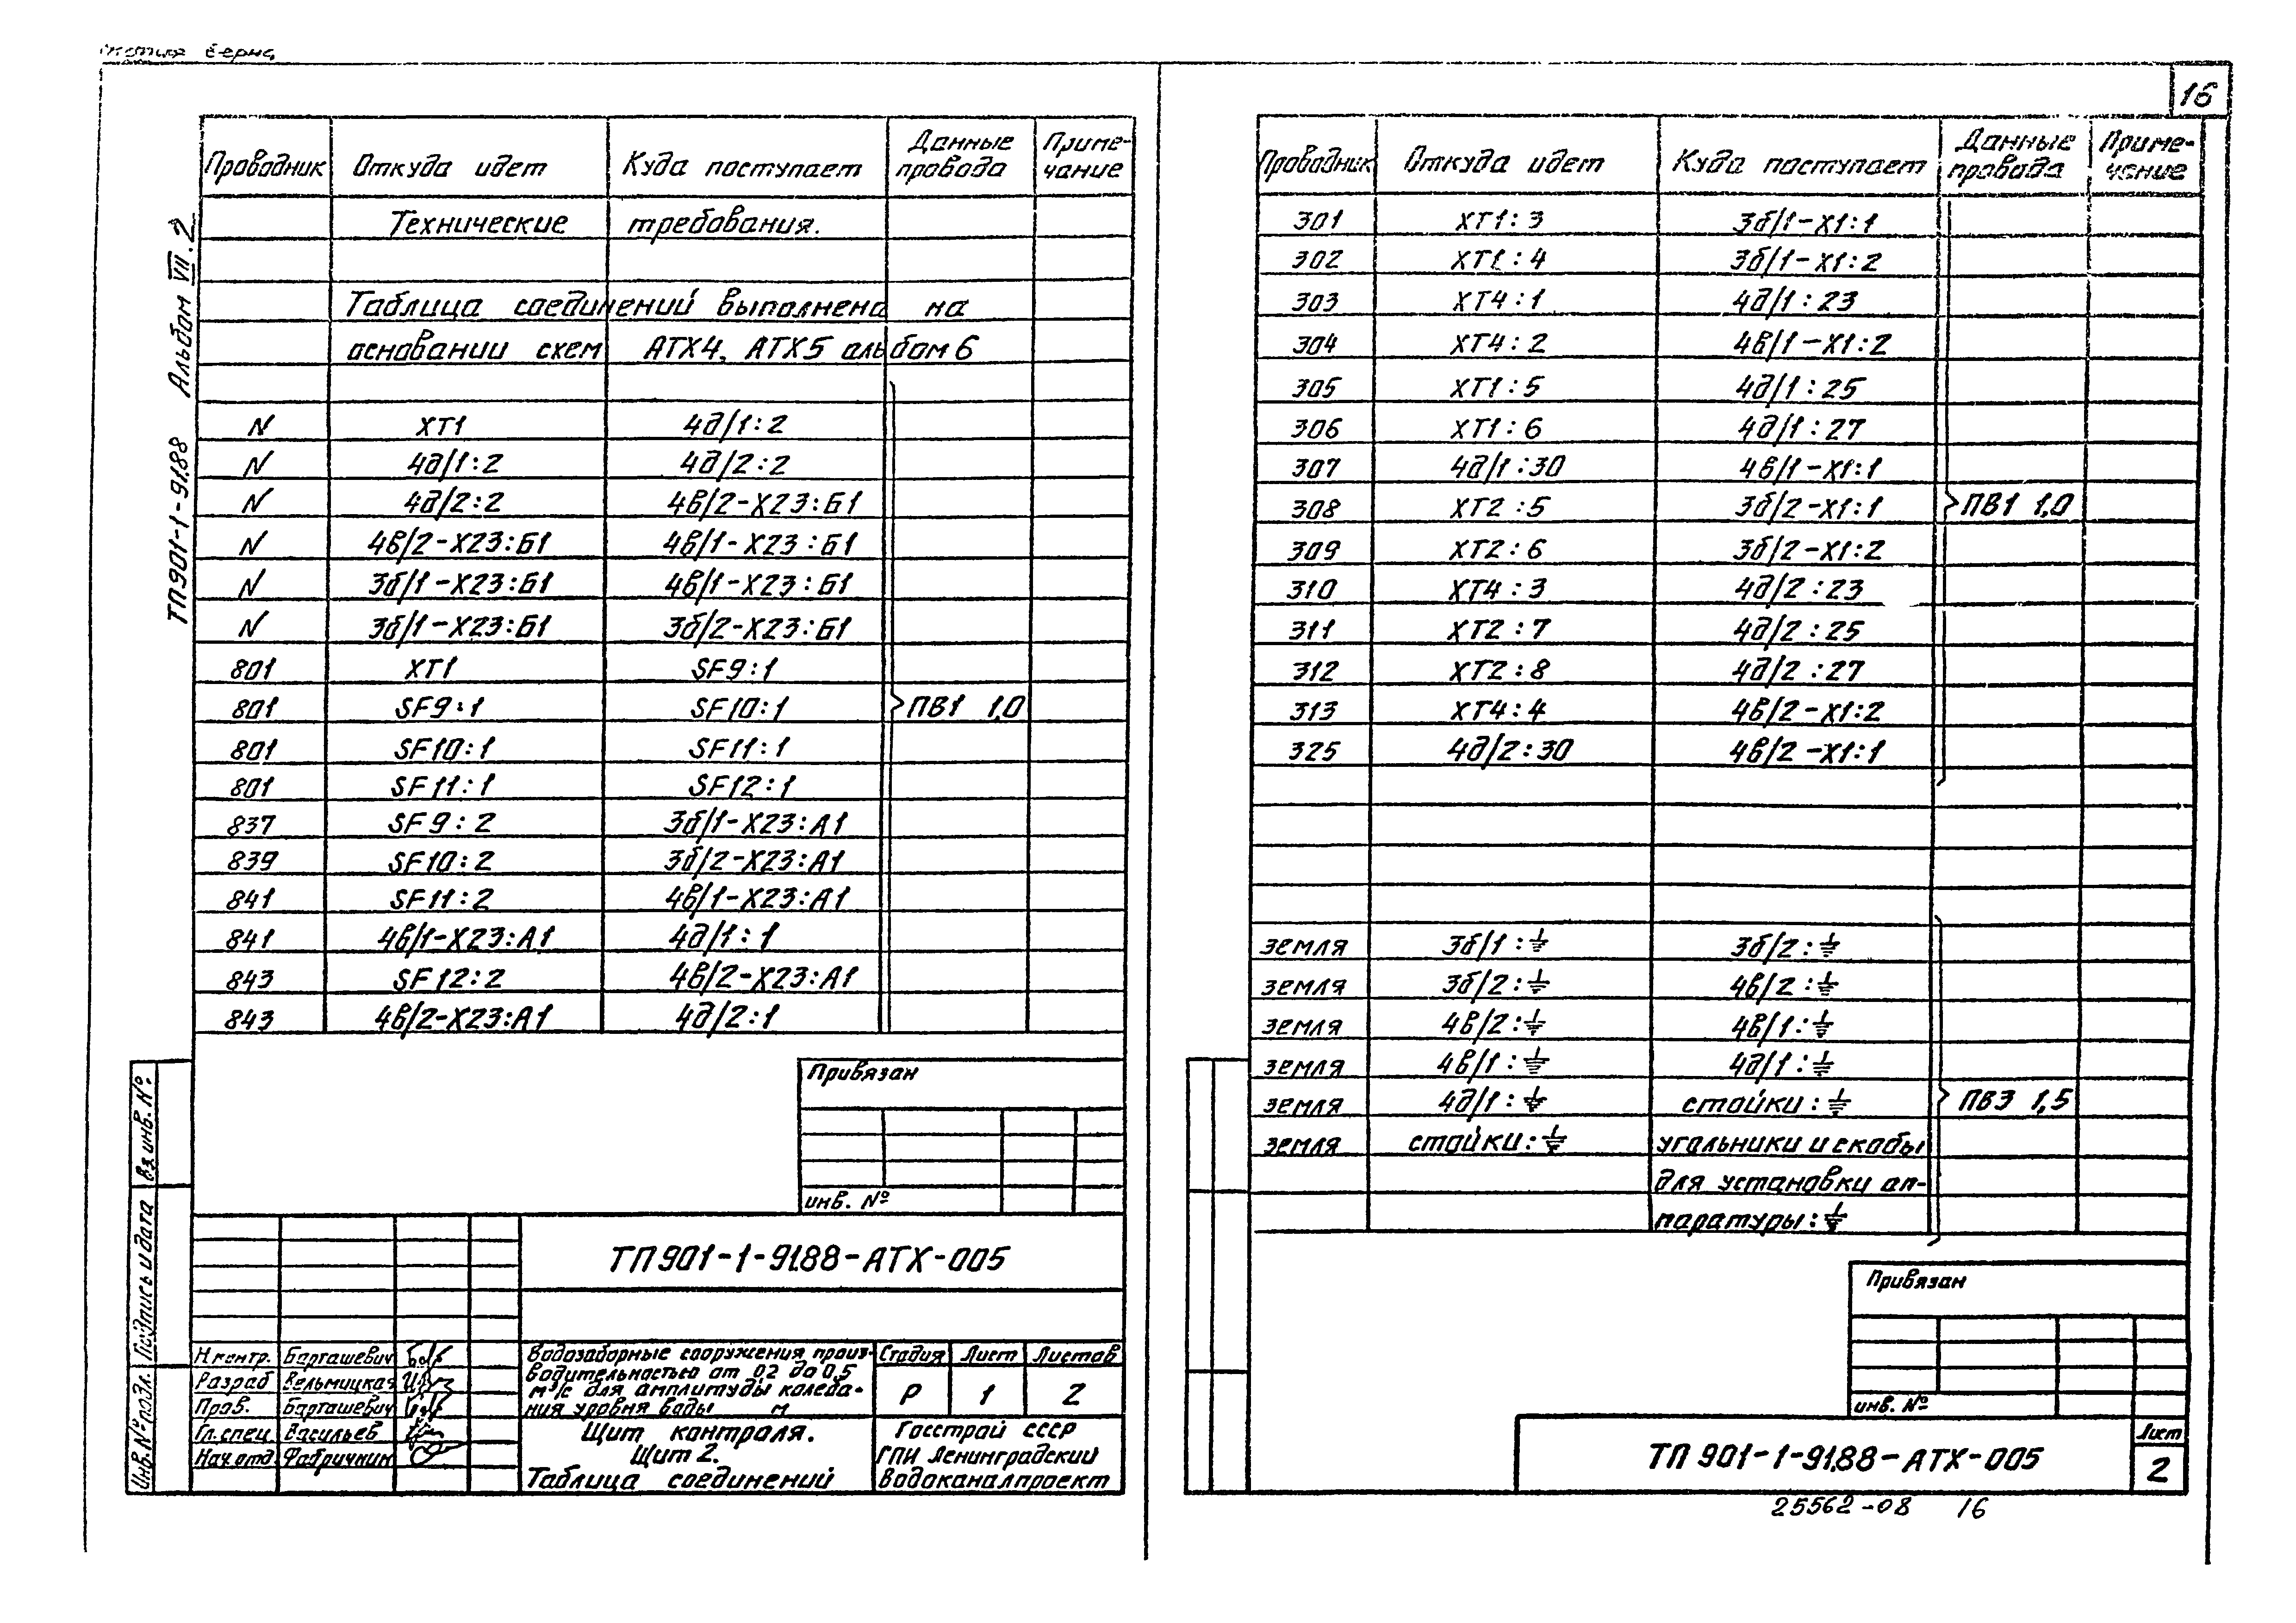 верна
16
ТП901-1-91.88 Альбом VII.2
Проводник Откуда идет Куда поступает Данные провода Приме-чание
Технические требования.
Таблица соединений выполнена на
основании схем АТХ4, АТХ5 альбом 6
N ХТ1 4д/1:2
N 4д/1:2 4д/2:2
N 4д/2:2 4в/2-Х23:Б1
N 4в/2-Х23:Б1 4в/1-Х23:Б1
N 3б/1-Х23:Б1 4в/1-Х23:Б1
N 3б/1-Х23:Б1 3б/2-Х23:Б1
801 ХТ1 SF9:1
801 SF9:1 SF10:1 ПВ1 1,0
801 SF10:1 SF11:1
801 SF11:1 SF12:1
837 SF9:2 3б/1-Х23:А1
839 SF10:2 3б/2-Х23:А1
841 SF11:2 4в/1-Х23:А1
841 4в/1-Х23:А1 4д/1:1
843 SF12:2 4в/2-Х23:А1
843 4в/2-Х23:А1 4д/2:1
Привязан
инв. №
Инв.№ подл. Подпись и дата Вз инв. №
ТП901-1-91.88-АТХ-005
Н.контр. Барташевич
Разраб Вельмицкая
Пров. Барташевич
Гл.спец. Васильев
Нач.отд Фабричнин
Водозаборные сооружения произ-
водительностью от 0.2 до 0,5
м³/с для амплитуды колеба-
ния уровня воды м
Стадия Лист Листов
Р 1 2
Щит контроля.
Щит 2.
Таблица соединений
Госстрой СССР
ГПИ Ленинградский
Водоканалпроект
Проводник Откуда идет Куда поступает Данные провода Приме-чение
301 ХТ1:3 3б/1-Х1:1
302 ХТ1:4 3б/1-Х1:2
303 ХТ4:1 4д/1:23
304 ХТ4:2 4в/1-Х1:2
305 ХТ1:5 4д/1:25
306 ХТ1:6 4д/1:27
307 4д/1:30 4в/1-Х1:1
308 ХТ2:5 3б/2-Х1:1 ПВ1 1,0
309 ХТ2:6 3б/2-Х1:2
310 ХТ4:3 4д/2:23
311 ХТ2:7 4д/2:25
312 ХТ2:8 4д/2:27
313 ХТ4:4 4в/2-Х1:2
325 4д/2:30 4в/2-Х1:1
земля 3б/1:⏚ 3б/2:⏚
земля 3б/2:⏚ 4в/2:⏚
земля 4в/2:⏚ 4в/1:⏚
земля 4в/1:⏚ 4д/1:⏚
земля 4д/1:⏚ стойки:⏚ ПВ3 1,5
земля стойки:⏚ угольники и скобы
для установки ап-
паратуры:⏚
Привязан
инв. №
ТП 901-1-91.88-АТХ-005
Лист
2
25562-08 16